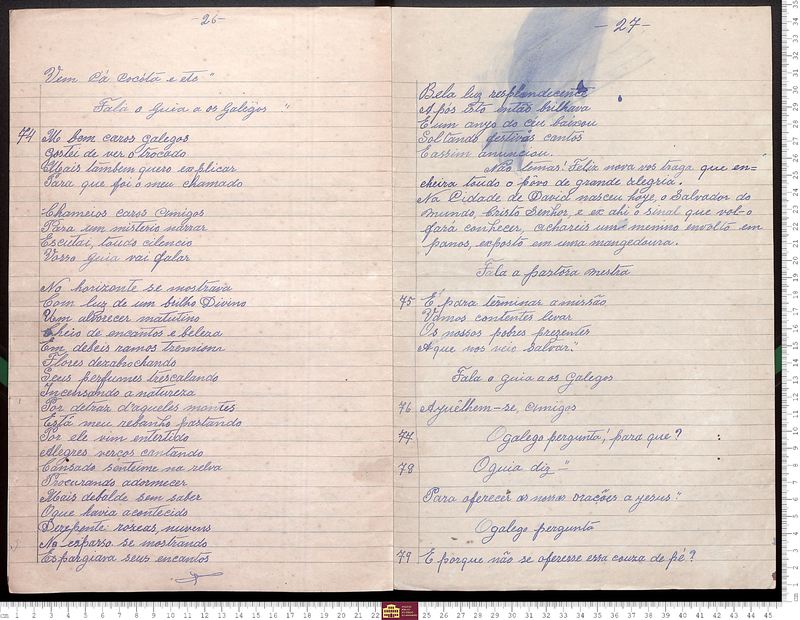 - 26 -
Vem Cá Cocóta e etc "
Fala o Guia a os Galegos "
74 Mo bem caros galegos
Gostei de ver o trocado
Mais tambem quero explicar
Para que foi o meu chamado
Chameios caros Amigos
Para um misterio narrar
Escutai, toudo cilencio
Vosso guia vai falar
No horizonte se mostrava
Com luz de um brilho Divino
Um alvorecer matutino
Cheio de encantos e beleza
Em debeis ramos
Flores dezabrochando
Seus perfumes trescalando
Incensando a natureza
Por detraz d'aqueles montes
Está meu rebanho pastando
Por ele vim entertido
Alegres verços cantando
Cansado senteime na relva
Procurando adormecer
Mais debalde sem saber
Oque havia acontecido
Derepente rozeas, nuvens
No espasso se mostrando
Espargiava seus encantos
- 27 -
Bela luz resplandicente
Após isto então brilhava
E um anjo do céu baixou
Soltando festivos cantos
E assim anunciou.
Não temas! Feliz nova vos trago que en-
cheira toudo o pôvo de grande alegria.
Na Cidade de David nasceu hoje, o Salvador do
mundo, Cristo Senhor, e ex ahi o sinal que vol-o
fará conhecer, achareis um menino envolto em
panos, exposto em uma mangedoura.
Fala a pastora mestra
75 E para terminar a missão
Vamos contentes levar
Os nossos pobres prezentes
Aque nos veio Salvar."
Fala o guia a os Galegos
76 Ajuêlhem-se, Amigos
77 O galego pergunta! para que?
78 O guia diz "
Para oferecer as nossas orações a jesus"
O galego pergunta
79 E porque não se oferesse essa couza de pé?